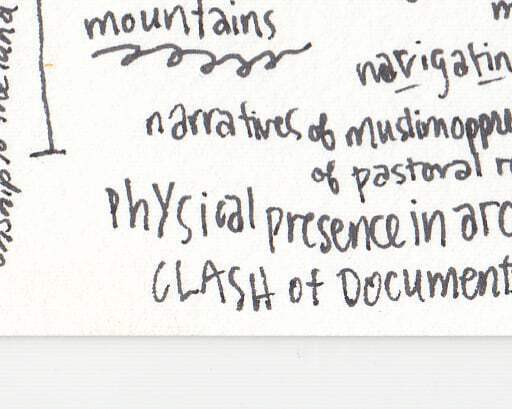 mountains
navigatin
narratives of muslim oppre
of pastoral r
physical presence in arc
CLASH of Document